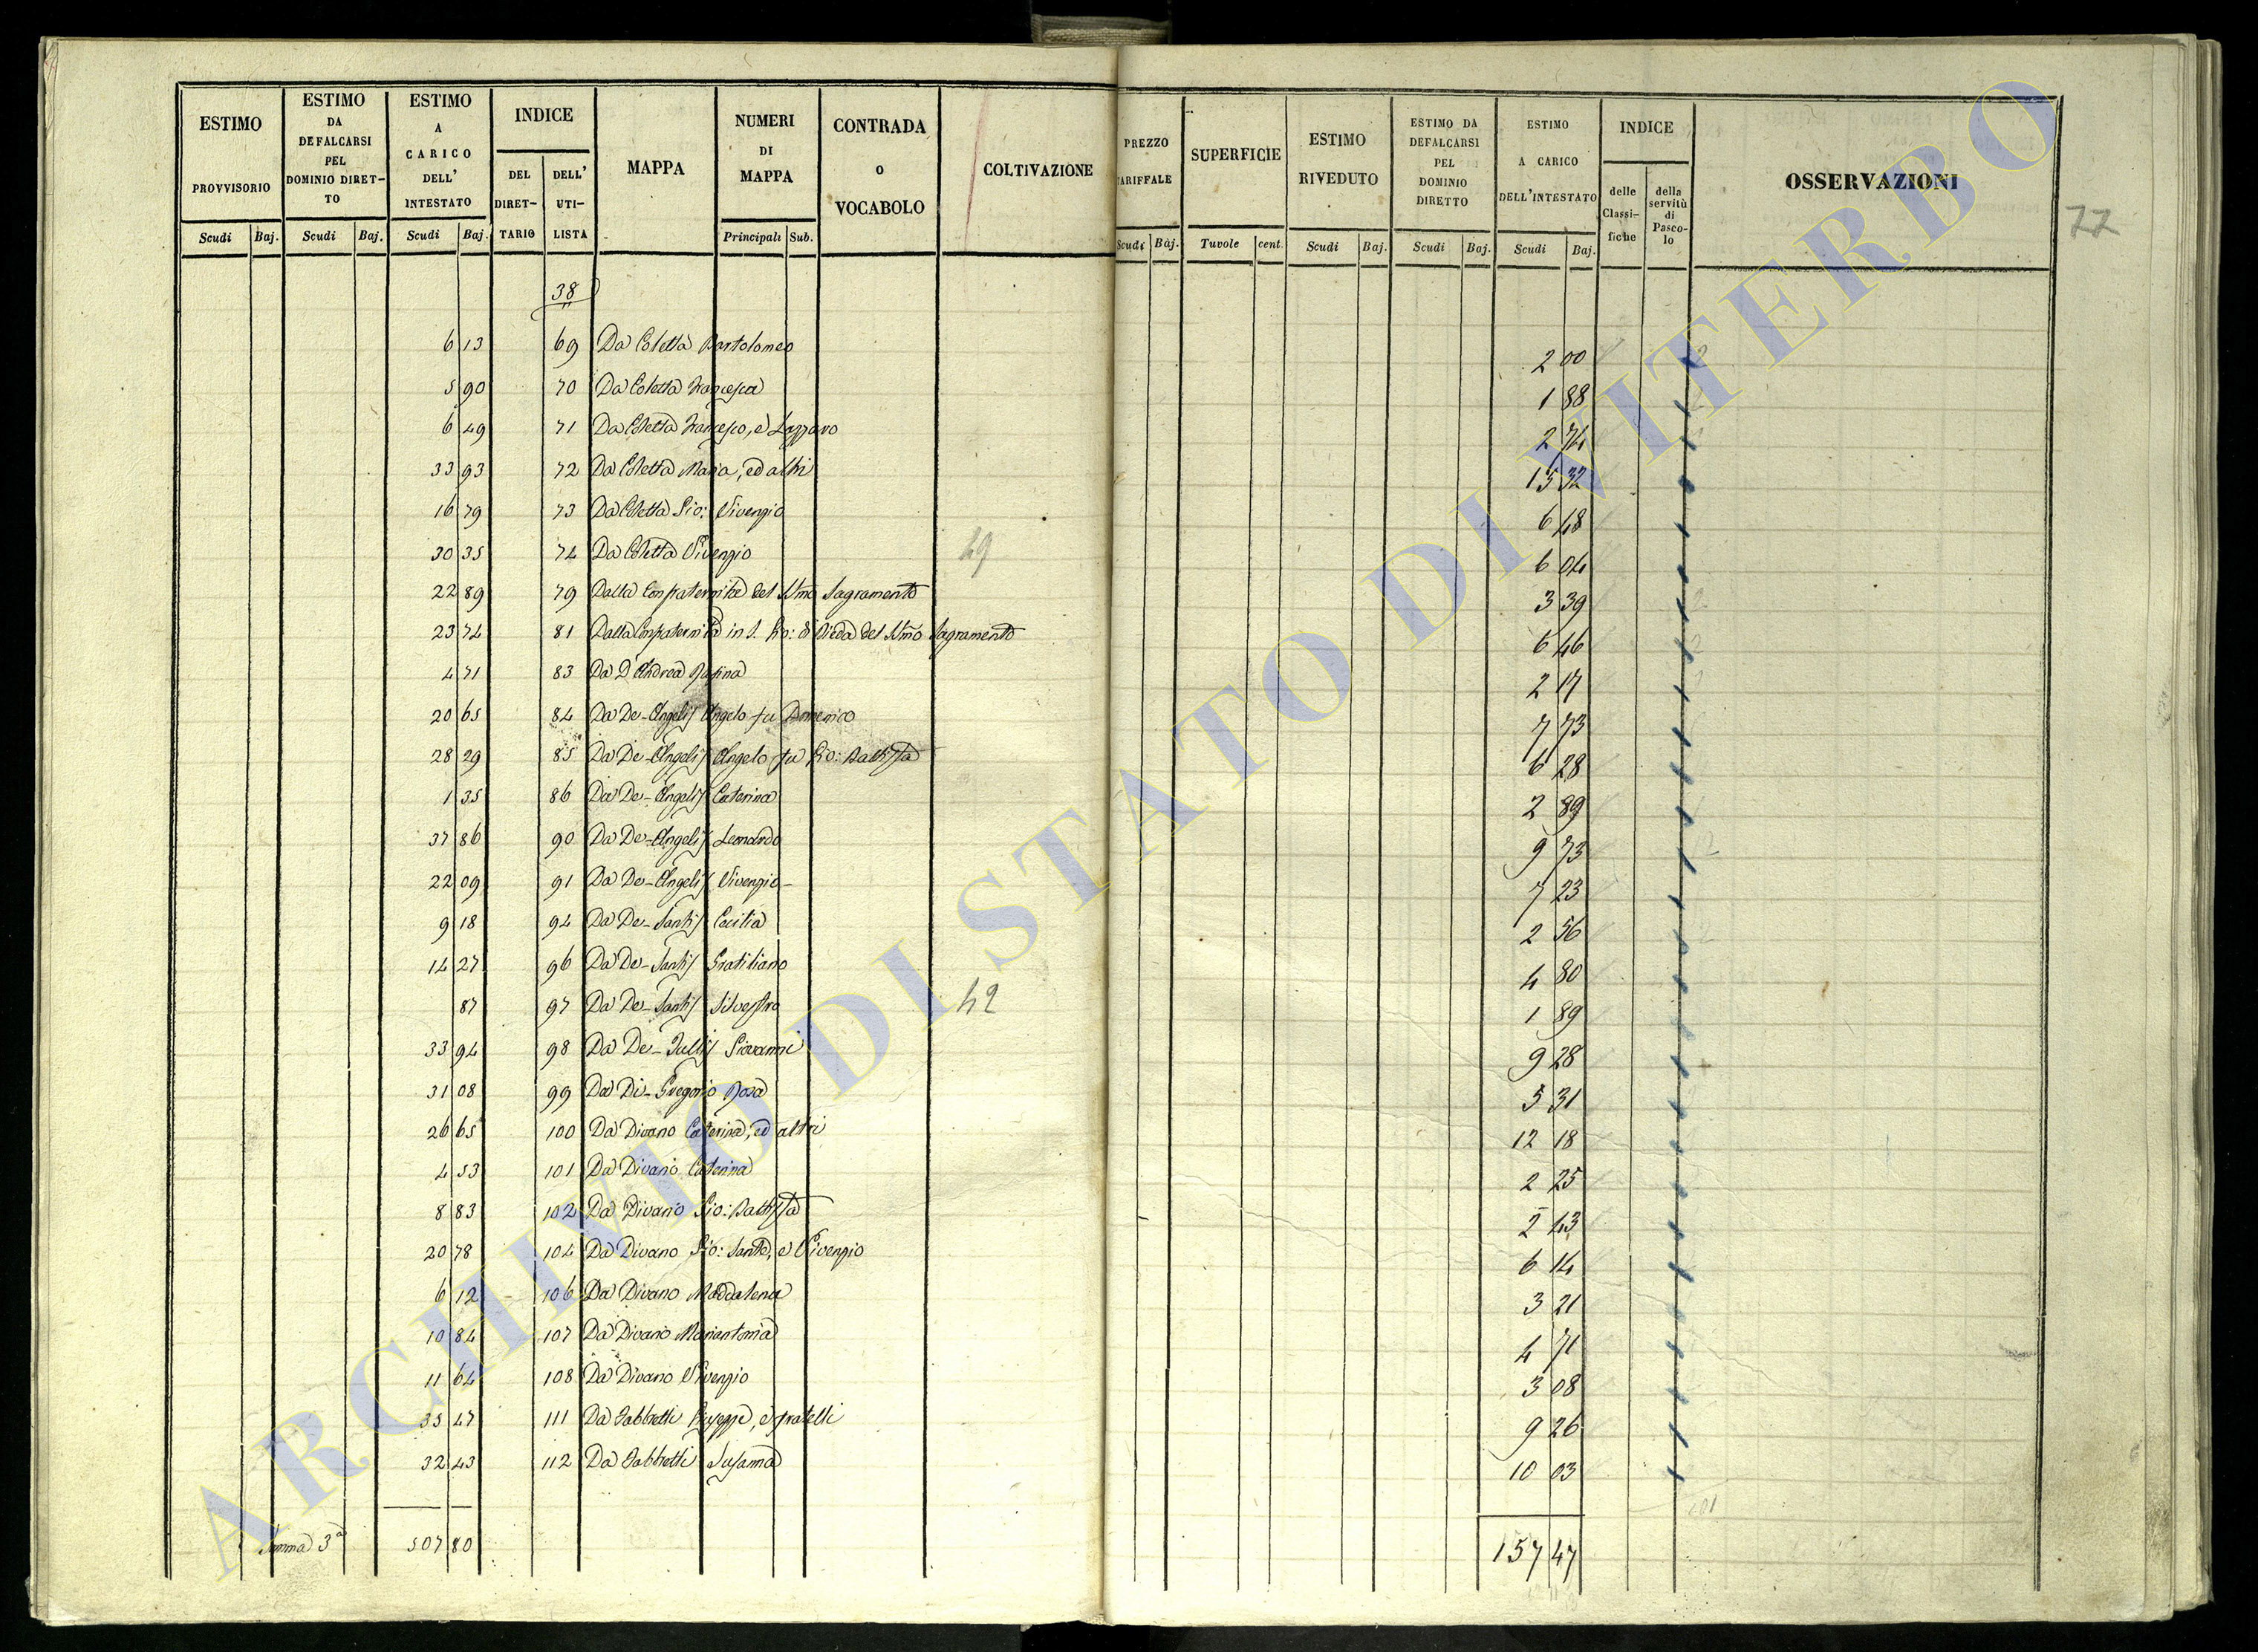 ESTIMO PROVVISORIO
ESTIMO DA DEFALCARSI PEL DOMINIO DIRETTO
ESTIMO A CARICO DELL' INTESTATO
INDICE
DEL DIRETTARIO
DELL' UTILISTA
MAPPA
NUMERI DI MAPPA
CONTRADA o VOCABOLO
COLTIVAZIONE
PREZZO TARIFFALE
SUPERFICIE
ESTIMO RIVEDUTO
ESTIMO DA DEFALCARSI PEL DOMINIO DIRETTO
ESTIMO A CARICO DELL'INTESTATO
INDICE
delle Classifiche
della servitù di Pascolo
OSSERVAZIONI
77
Scudi Baj. Scudi Baj. Scudi Baj. Principali Sub. Scudi Baj. Tavole cent. Scudi Baj. Scudi Baj. Scudi Baj.
38
6 13 69 Da Coletta Bartolomeo 2 00
5 90 70 Da Coletta Francesca 1 88
6 49 71 Da Coletta Francesco, e Lazzaro 2 74
33 93 72 Da Coletta Maria, ed altri 15 32
16 79 73 Da Coletta Gio: Vivenzio 6 48
30 35 74 Da Coletta Vivenzio 49 6 04
22 89 79 Dalla Confraternita del SSmo Sagramento 3 39
23 74 81 Dalla Confraternita in S. Gio: di Bieda del SSmo Sagramento 6 46
4 71 83 Da D'Andrea Rufina 2 17
20 65 84 Da De-Angelis Angelo fu Domenico 7 73
28 29 85 Da De-Angelis Angelo fu Gio: Battista 6 28
1 35 86 Da De-Angelis Caterina 2 89
37 86 90 Da De-Angelis Leonardo 9 73
22 09 91 Da De-Angelis Vivenzio 7 23
9 18 94 Da De-Santis Cecilia 2 56
14 27 96 Da De-Santis Gratiliano 4 80
87 97 Da De-Santis Silvestro 42 1 89
33 94 98 Da De-Iuliis Giovanni 9 28
31 08 99 Da Di-Gregorio Rosa 5 31
26 65 100 Da Divano Caterina, ed altri 12 18
4 53 101 Da Divano Caterina 2 25
8 83 102 Da Divano Gio: Battista 2 43
20 78 104 Da Divano Gio: Sante, e Vivenzio 6 14
6 12 106 Da Divano Maddalena 3 21
10 84 107 Da Divano Mariantonia 4 71
11 64 108 Da Divano Vivenzio 3 08
35 47 111 Da Fabbretti Giuseppe, e fratelli 9 26
32 43 112 Da Fabbretti Susanna 10 03
Somma 3a 507 80 157 47
ARCHIVIO DI STATO DI VITERBO